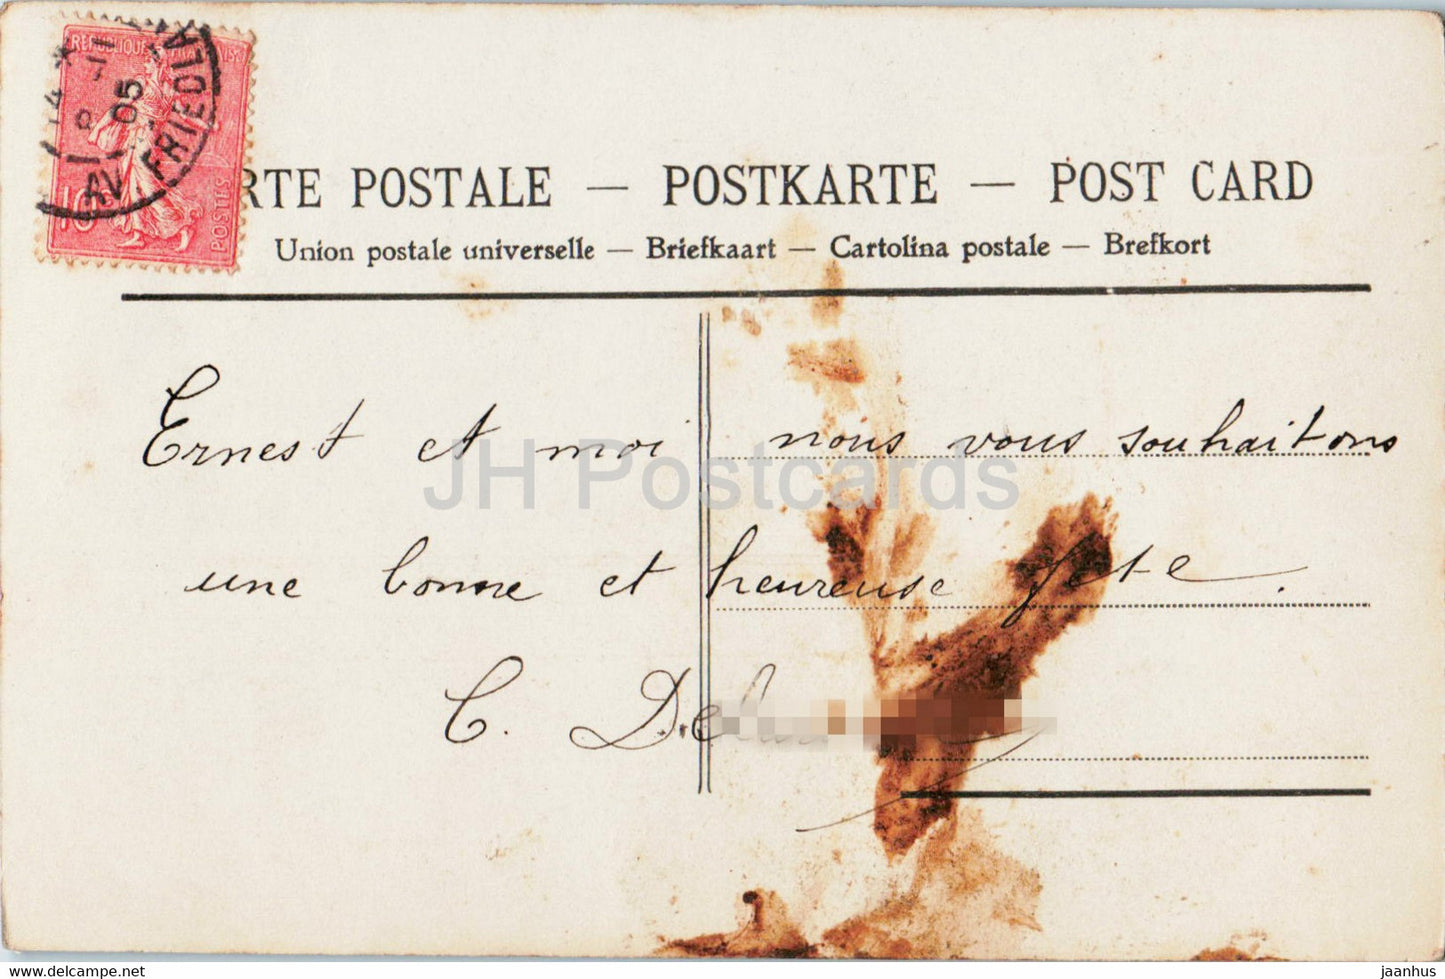 RÉPUBLIQUE FRA
05
FRIEDLA
10
POSTES
RTE POSTALE — POSTKARTE — POST CARD
Union postale universelle — Briefkaart — Cartolina postale — Brefkort
Ernest et moi nous vous souhaitons
une bonne et heureuse fete.
C. De
JH Postcards
www.delcampe.net
jaanhus